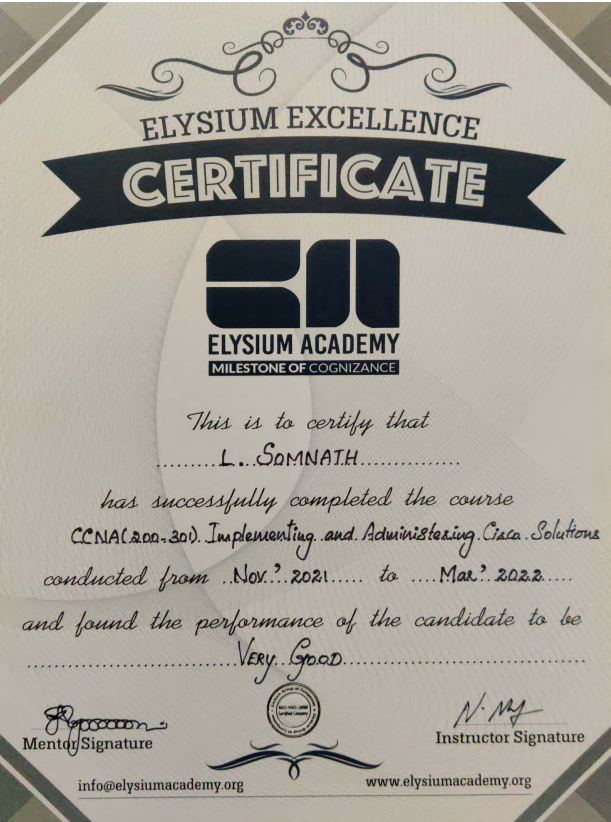 ELYSIUM EXCELLENCE
CERTIFICATE
ELYSIUM ACADEMY
MILESTONE OF COGNIZANCE
This is to certify that
.........L...SOMNATH...............
has successfully completed the course
CCNA(200-301). Implementing and Administering Cisco Solutions
conducted from ..Nov.' 2021..... to ....Mar' 2022.....
and found the performance of the candidate to be
................................VERY GOOD...................................
ISO 9001:2008
Certified Company
Mentor Signature
Instructor Signature
info@elysiumacademy.org
www.elysiumacademy.org